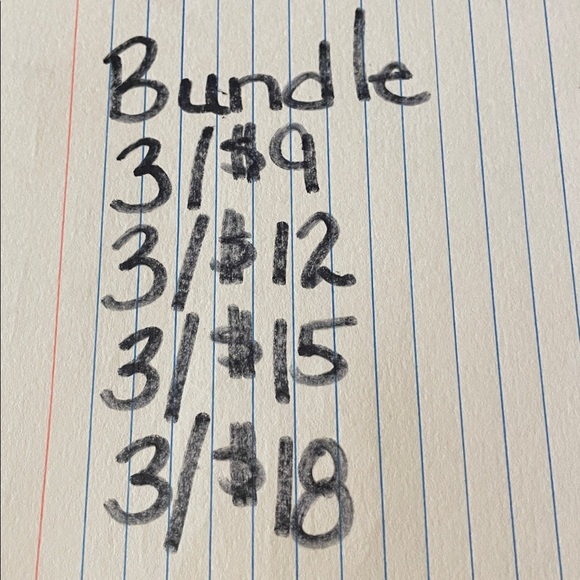 Bundle
3/$9
3/$12
3/$15
3/$18